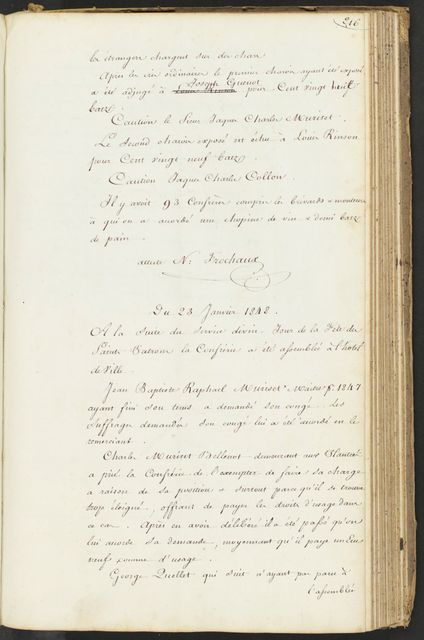 216
les étrangers chargent sur des chars
Après les cris ordinaires le premier charoi ayant été exposé
Joseph Guenot
a été adjugé à Louis Rinson pour Cent vingt neuf
batz.
Cautions le Sieur Jaques Charles Muriset.
Le Second charoi exposé est échu à Louis Rinson
pour Cent vingt neuf batz.
Caution Jaques Charles Collon.
Il y avoit 93 Confrères compris les brévards & moutiers
à qui on a acordé une chopine de vin & demi batz
de pain.
atteste N. Frochaux
Du 23 Janvier 1848.
A la Suite du Service divin Jour de la Fête du
Saint Patron la Confrérie a été assemblée à l'hotel
de Ville.
Jean Baptiste Raphael Muriset Maitre p. 1847
ayant fini son tems a demandé son congé. Les
Suffrages demandés son congé lui a été acordé en le
remerciant.
Charles Muriset Bellenot demeurant aux
a prié la Confrérie de l'exempter de faire sa charge
a raison de sa position & surtout parce qu'il se trouve
trop éloigné, offrant de payer les droits d'usage dans
ce cas. Après en avoir délibéré il a été passé qu'on
lui acorde sa demande, moyennant qu'il paye un Ecu
neuf comme d'usage.
George Quellet qui suit n'ayant pas paru à
l'assemblée